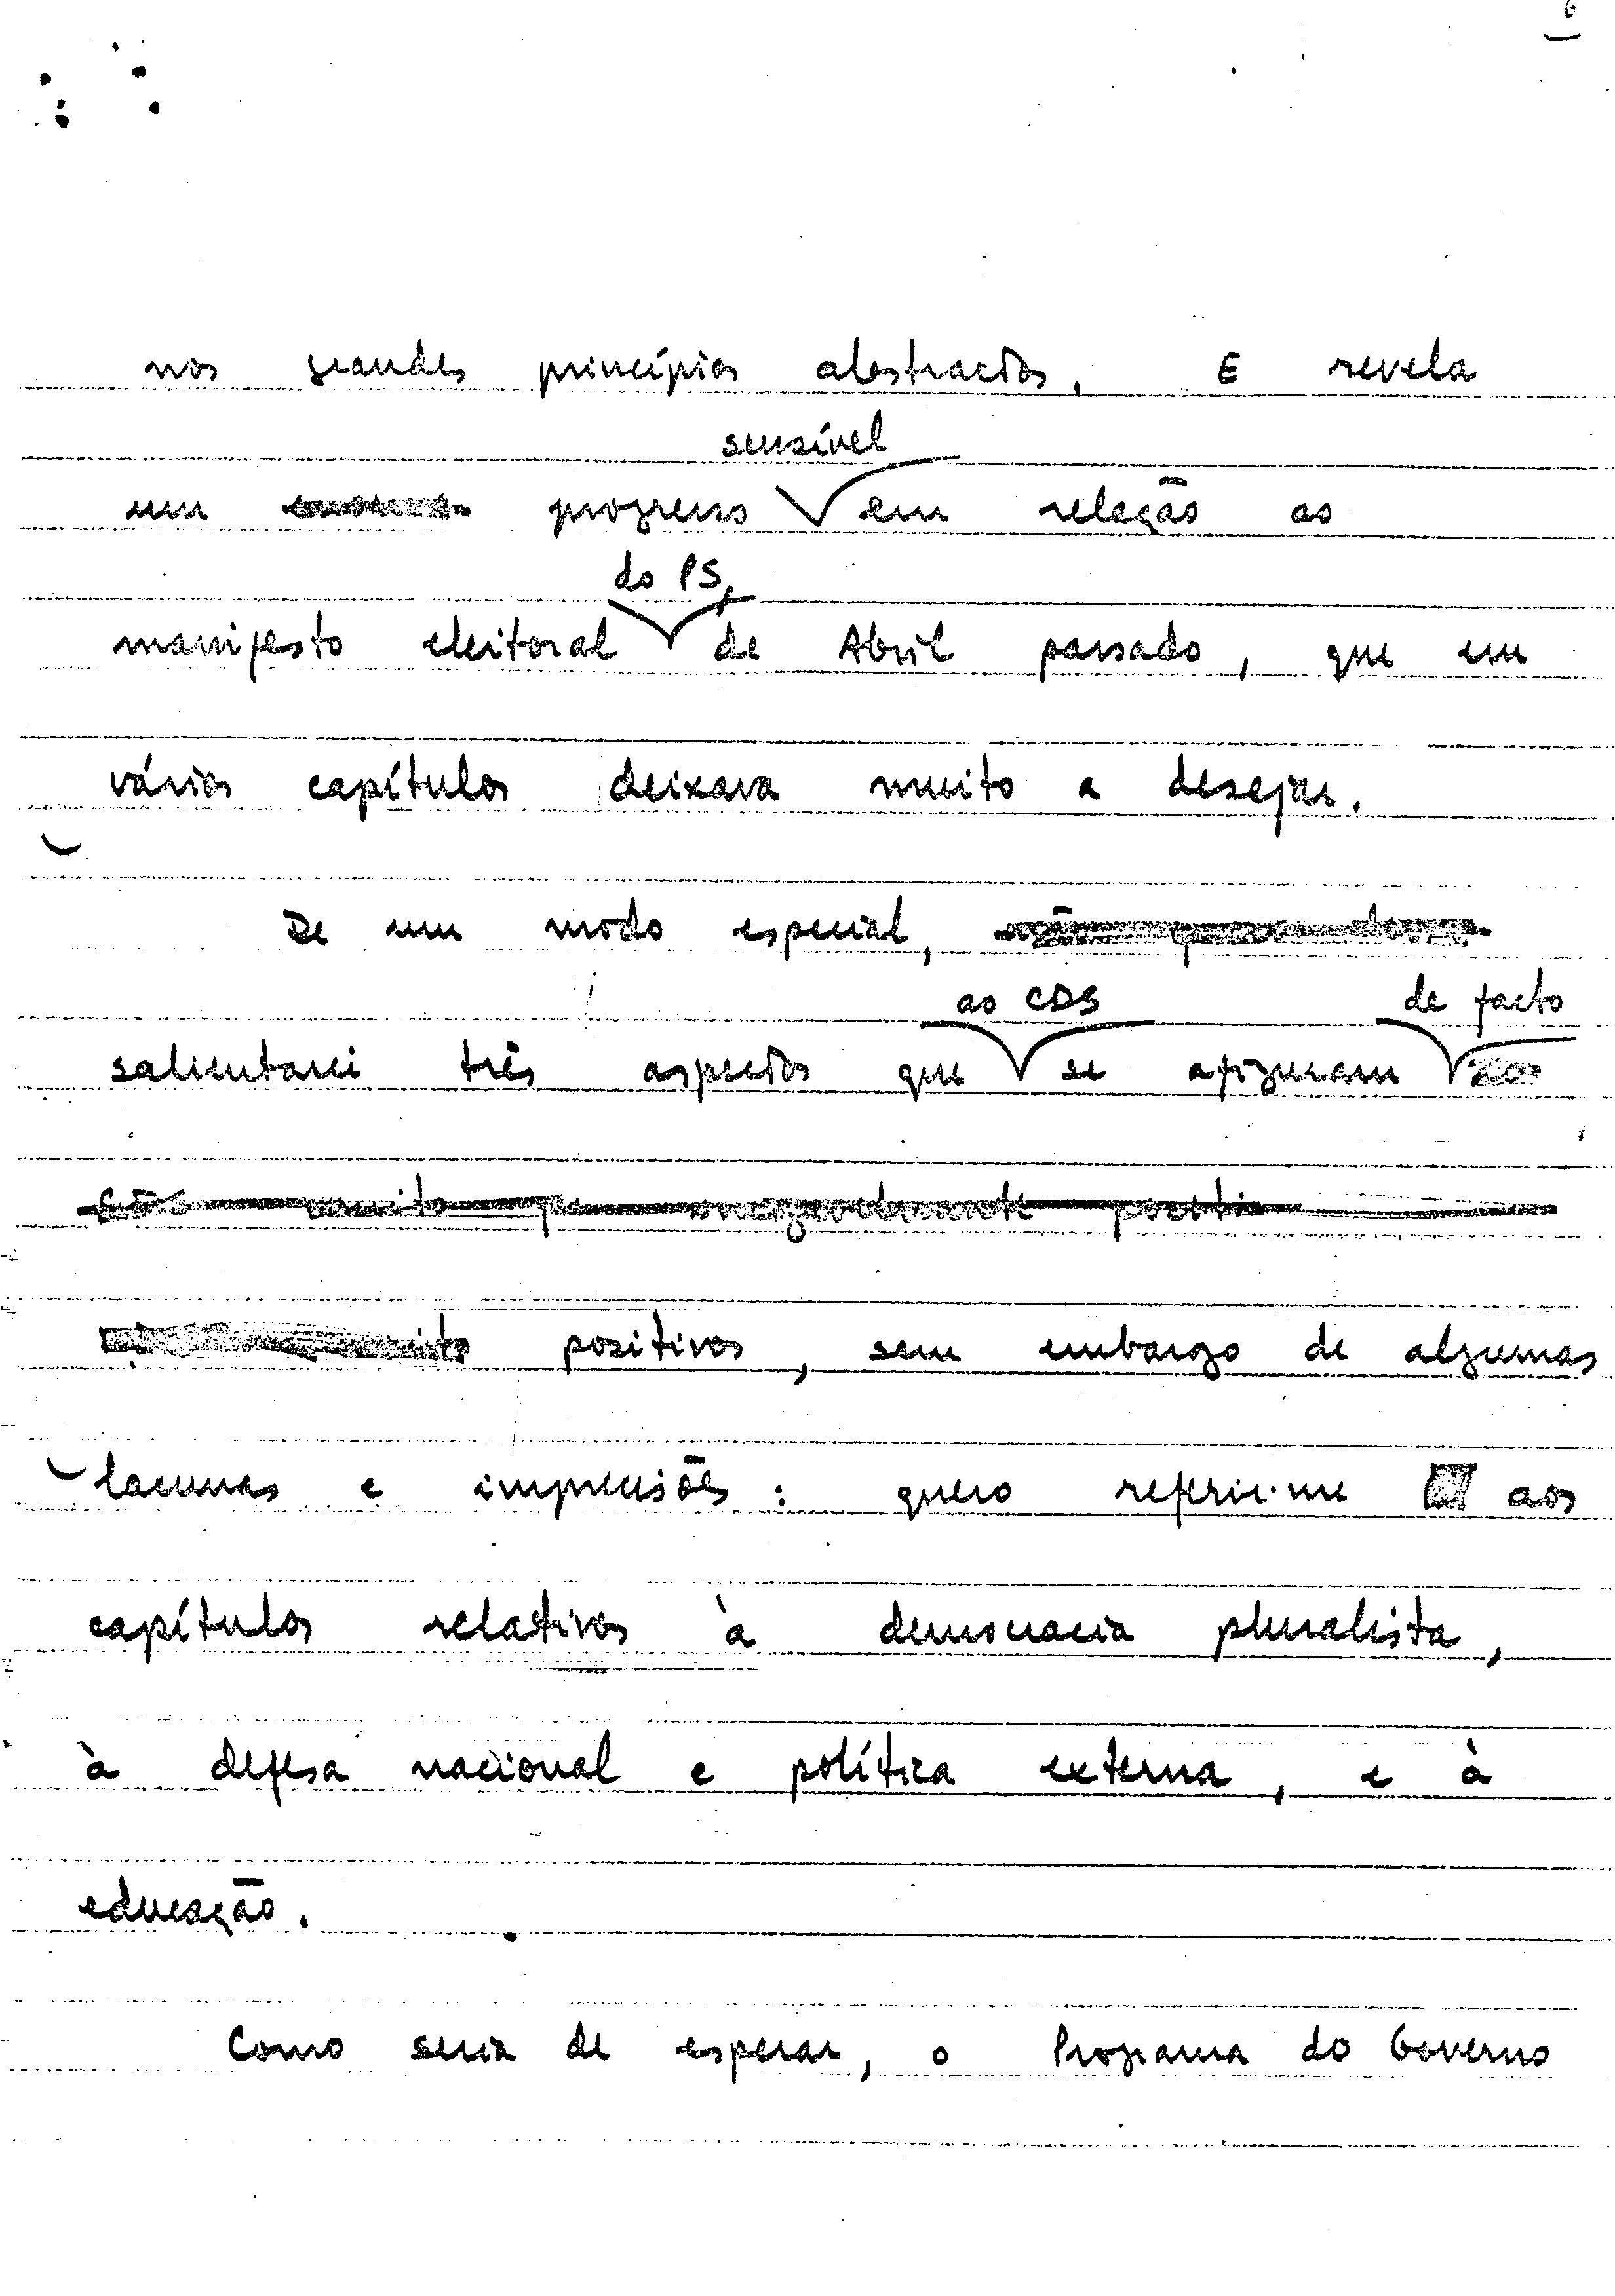 6
nos grandes princípios abstractos. E revela
sensível
um progresso em relação ao
do PS,
manifesto eleitoral de Abril passado, que em
vários capítulos deixava muito a desejar.
De um modo especial,
ao CDS de facto
salientarei três aspectos que se afiguram
positivos, sem embargo de algumas
lacunas e imprecisões: quero referir-me aos
capítulos relativos à democracia pluralista,
à defesa nacional e política externa, e à
educação.
Como seria de esperar, o Programa do Governo